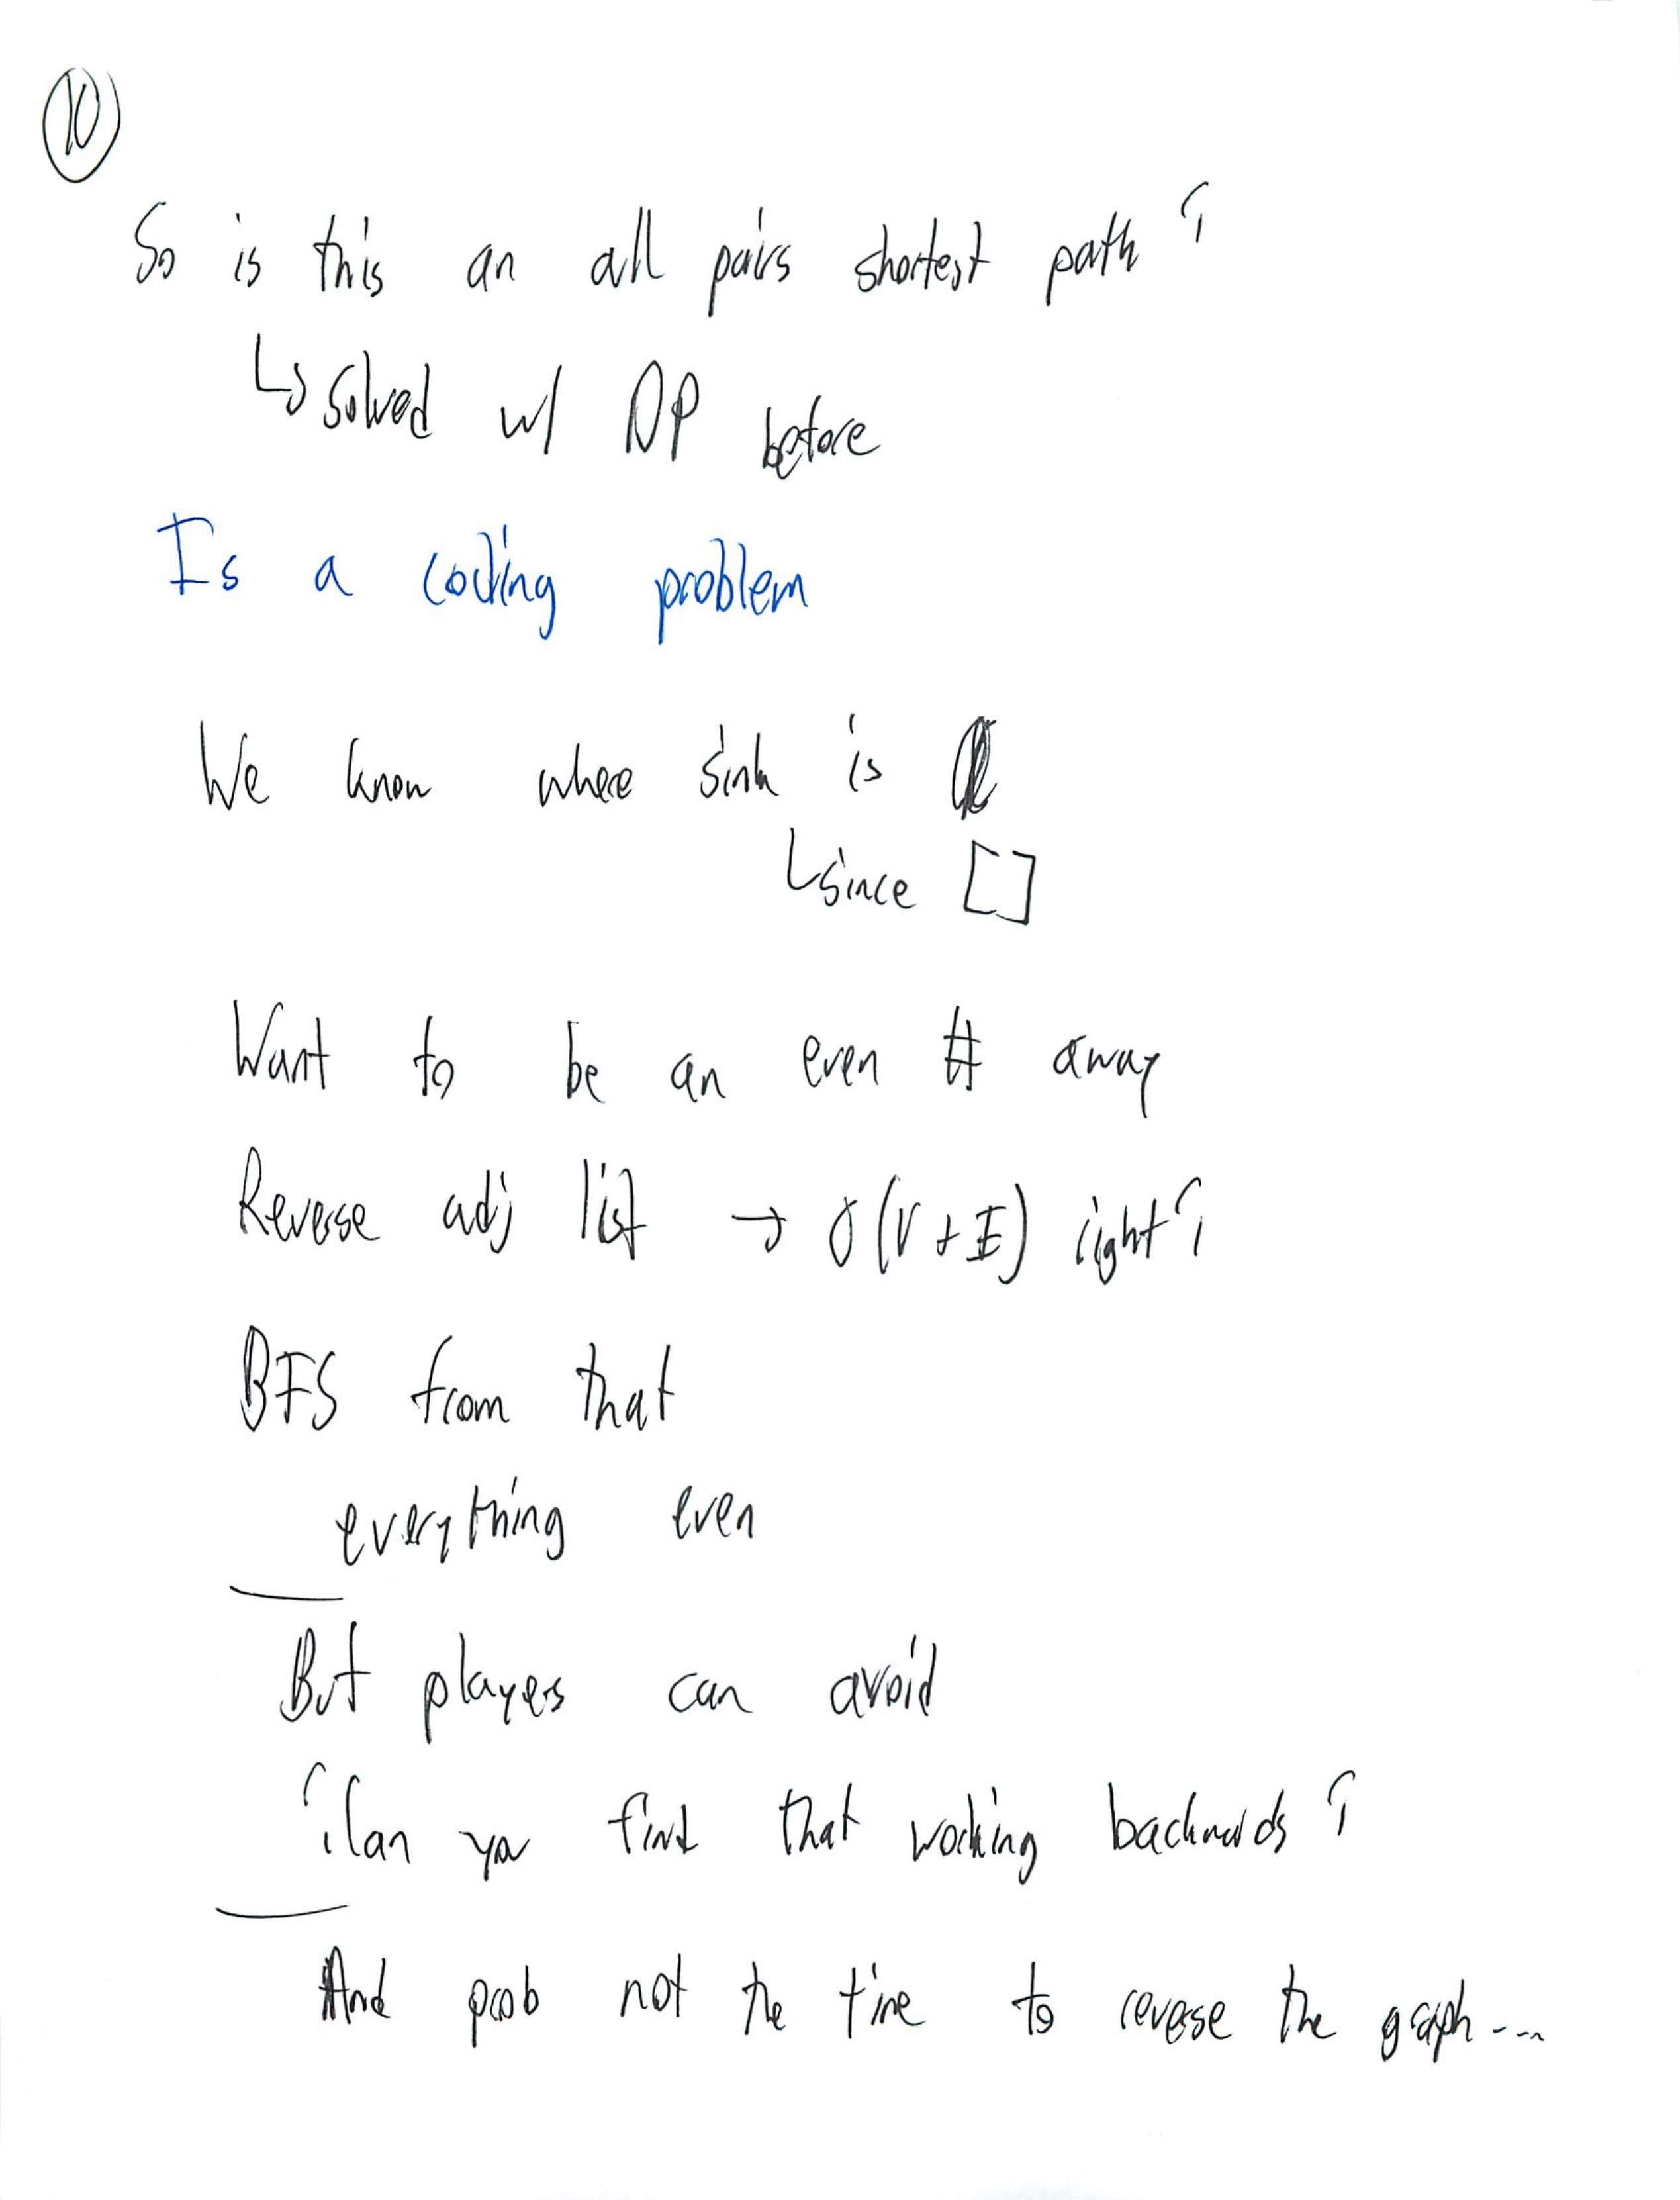 10
So is this an all pairs shortest path?
↳ solved w/ DP before
Is a coding problem
We know where sink is
↳ since []
Want to be an even # away
Reverse adj list → O(V + E) right?
BFS from that
everything even
But players can avoid
¿Can you find that working backwards?
And prob not the time to reverse the graph...